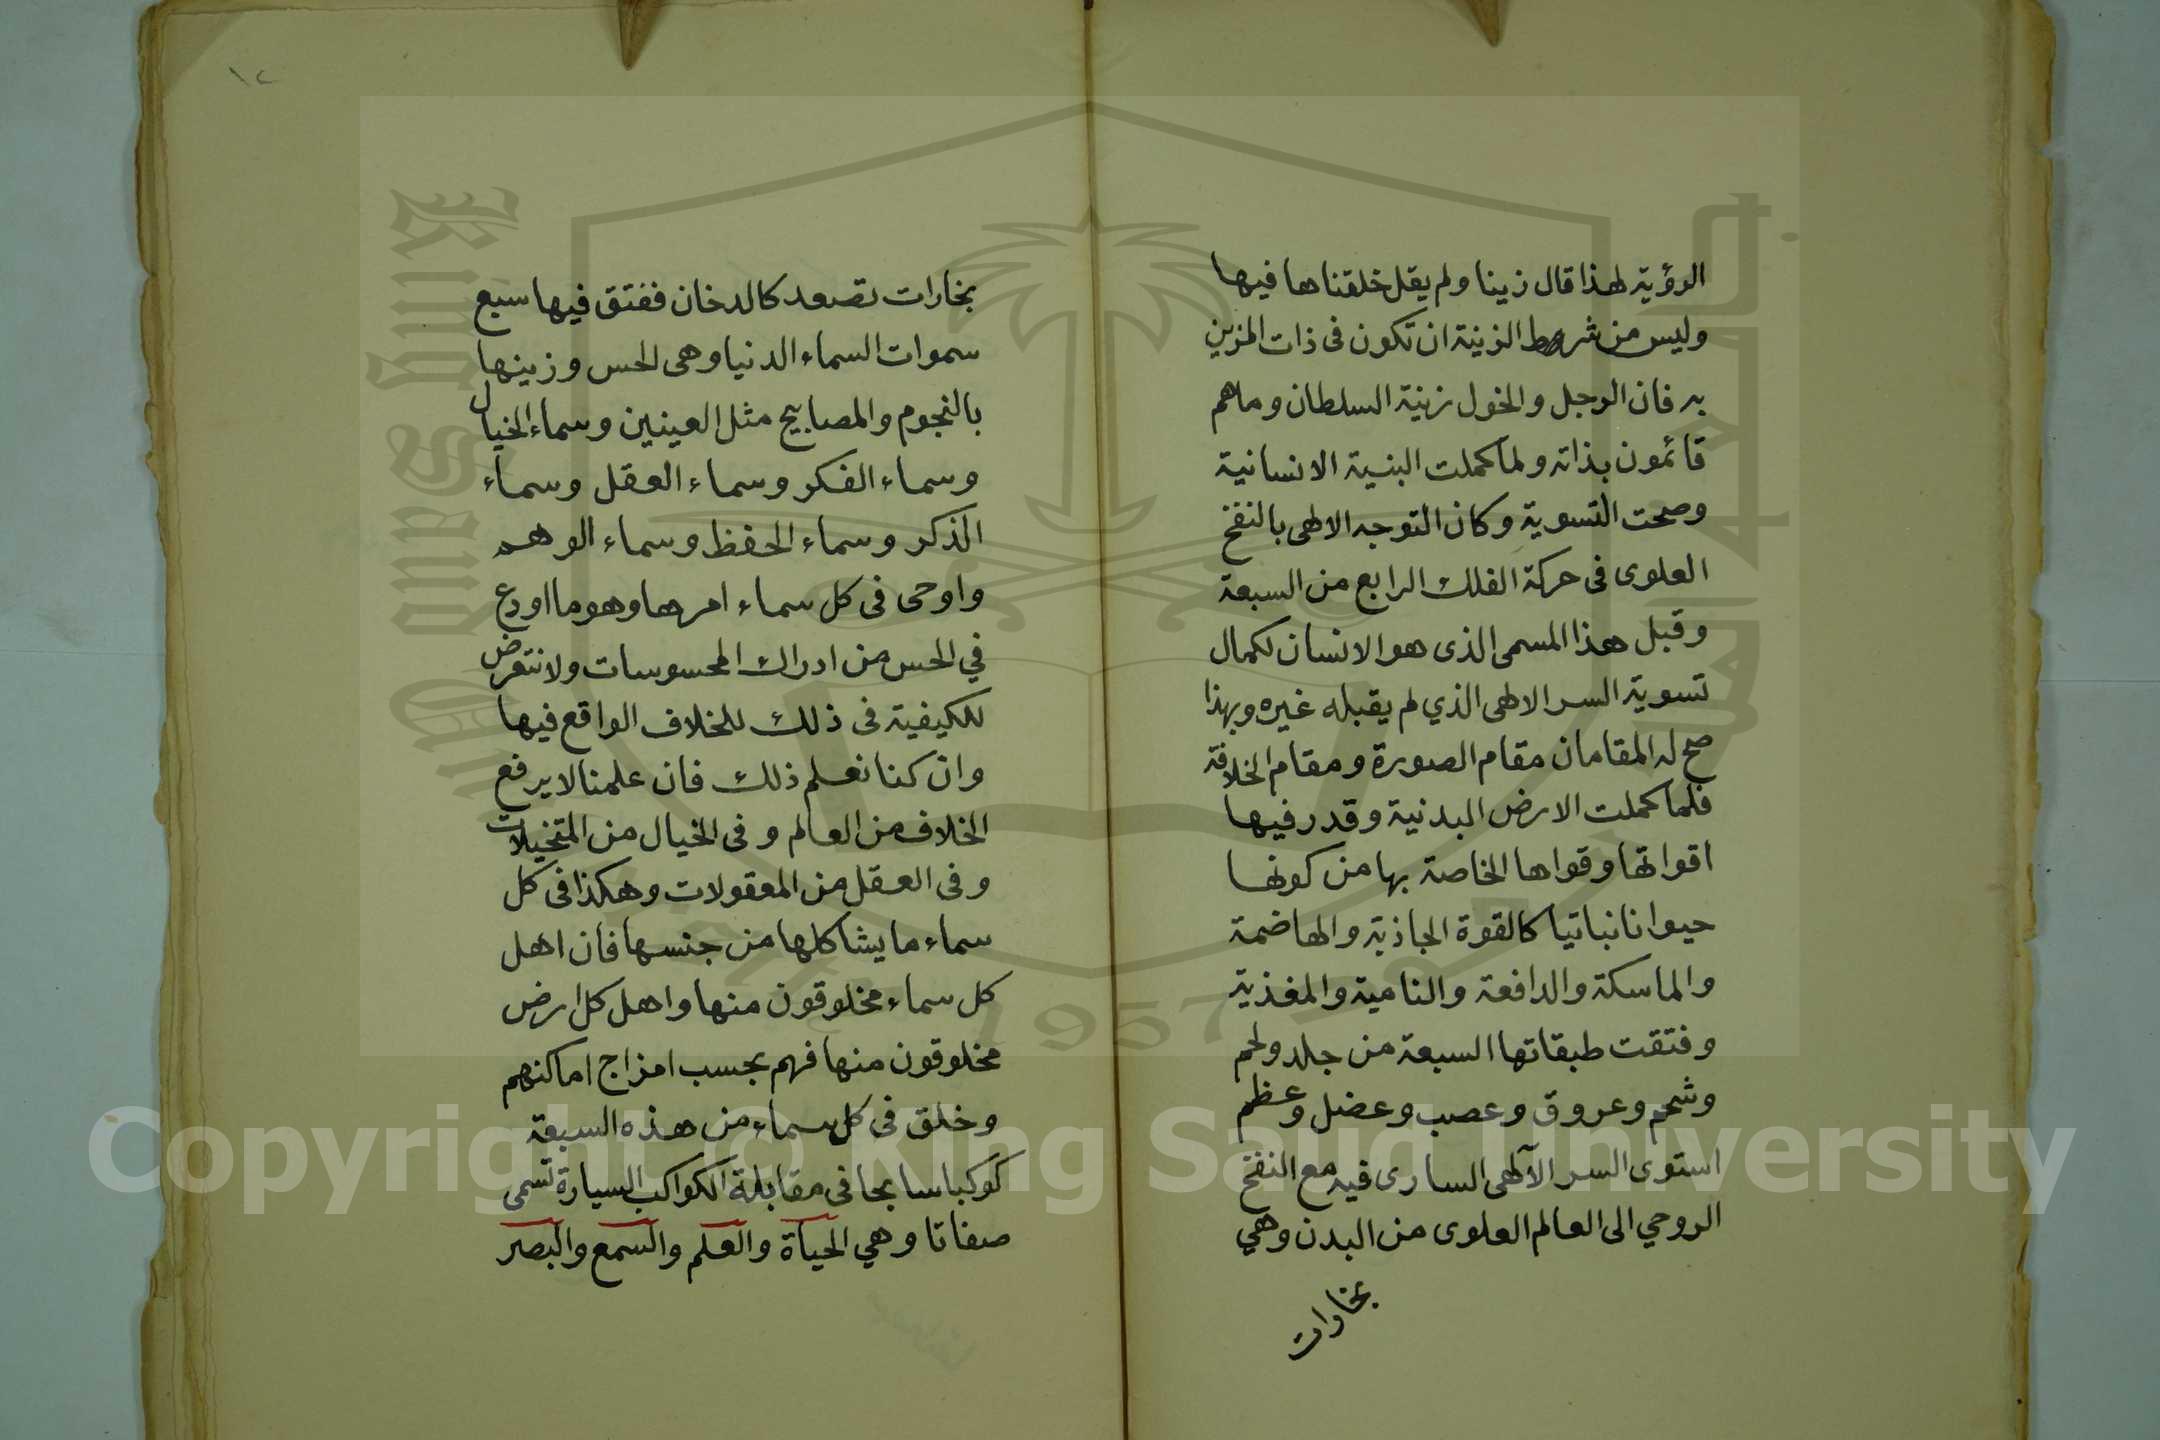 الرؤية لهذا قال زينا ولم يقل خلقناها فيها
وليس من شرط الزينة ان تكون فى ذات المزين
به فان الرجل والخول زنية السلطان وماهم
قائمون بذاته ولما كملت البنية الانسانية
وصحت التسوية وكان التوجه الالهى بالنفخ
العلوى فى حركة الفلك الرابع من السبعة
وقبل هذا المسمى الذى هو الانسان لكمال
تسوية السر الالهى الذي لم يقبله غيره وبهذا
صح له المقامان مقام الصورة ومقام الخلافة
فلما كملت الارض البدنية وقدر فيها
اقواتها وقواها الخاصة بها من كونها
حيوانا نباتيا كالقوة الجاذبة والهاضمة
والماسكة والدافعة والنامية والمغذية
وفتقت طبقاتها السبعة من جلد ولحم
وشحم وعروق وعصب وعضل وعظم
استوى السر الآلهى السارى فيه مع النفخ
الروحي الى العالم العلوى من البدن وهي
بخارات
١٢
بخارات تصعد كالدخان ففتق فيها سبع
سموات السماء الدنيا وهى الحس وزينها
بالنجوم والمصابيح مثل العينين وسماء الخيال
وسماء الفكر وسماء العقل وسماء
الذكر وسماء الحفظ وسماء الوهم
واوحى فى كل سماء امرها وهو ما اودع
في الحس من ادراك المحسوسات ولا نتعرض
للكيفية فى ذلك للخلاف الواقع فيها
وان كنا نعلم ذلك فان علمنا لا يرفع
الخلاف من العالم وفى الخيال من المتخيلات
وفى العقل من المعقولات وهكذا فى كل
سماء ما يشاكلها من جنسها فان اهل
كل سماء مخلوقون منها واهل كل ارض
مخلوقون منها فهم بحسب امزاج اماكنهم
وخلق فى كل سماء من هذه السبعة
كوكبا سابحا فى مقابلة الكواكب السيارة تسمى
صفاتا وهي الحياة والعلم والسمع والبصر
King Saud University
1957
Copyright © King Saud University